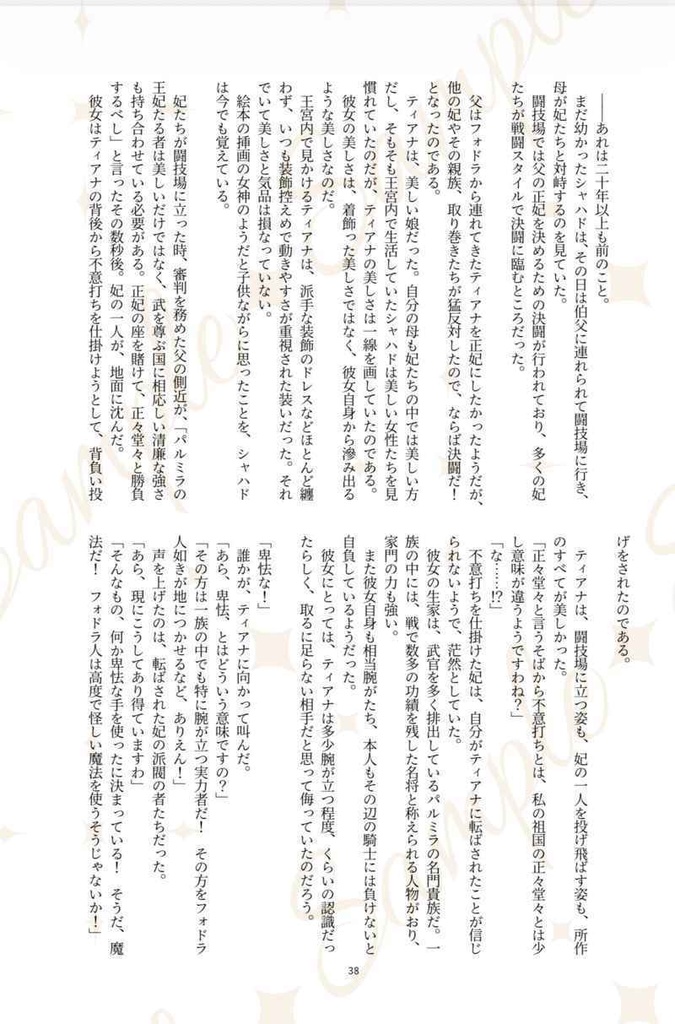 ――あれは二十年以上も前のこと。
まだ幼かったシャハドは、その日は伯父に連れられて闘技場に行き、
母が妃たちと対峙するのを見ていた。
闘技場では父の正妃を決めるための決闘が行われており、多くの妃
たちが戦闘スタイルで決闘に臨むところだった。
父はフォドラから連れてきたティアナを正妃にしたかったようだが、
他の妃やその親族、取り巻きたちが猛反対したので、ならば決闘だ！
となったのである。
ティアナは、美しい娘だった。自分の母も妃たちの中では美しい方
だし、そもそも王宮内で生活していたシャハドは美しい女性たちを見
慣れていたのだが、ティアナの美しさは一線を画していたのである。
彼女の美しさは、着飾った美しさではなく、彼女自身から滲み出る
ような美しさなのだ。
王宮内で見かけるティアナは、派手な装飾のドレスなどほとんど纏
わず、いつも装飾控えめで動きやすさが重視された装いだった。それ
でいて美しさと気品は損なっていない。
絵本の挿画の女神のようだと子供ながらに思ったことを、シャハド
は今でも覚えている。
妃たちが闘技場に立った時、審判を務めた父の側近が、「パルミラの
王妃たる者は美しいだけではなく、武を尊ぶ国に相応しい清廉な強さ
も持ち合わせている必要がある。正妃の座を賭けて、正々堂々と勝負
するべし」と言ったその数秒後。妃の一人が、地面に沈んだ。
彼女はティアナの背後から不意打ちを仕掛けようとして、背負い投
げをされたのである。
ティアナは、闘技場に立つ姿も、妃の一人を投げ飛ばす姿も、所作
のすべてが美しかった。
「正々堂々と言うそばから不意打ちとは、私の祖国の正々堂々とは少
し意味が違うようですわね？」
「な……!?」
不意打ちを仕掛けた妃は、自分がティアナに転ばされたことが信じ
られないようで、茫然としていた。
彼女の生家は、武官を多く排出しているパルミラの名門貴族だ。一
族の中には、戦で数多の功績を残した名将と称えられる人物がおり、
家門の力も強い。
また彼女自身も相当腕がたち、本人もその辺の騎士には負けないと
自負しているようだった。
彼女にとっては、ティアナは多少腕が立つ程度、くらいの認識だっ
たらしく、取るに足らない相手だと思って侮っていたのだろう。
「卑怯な！」
誰かが、ティアナに向かって叫んだ。
「あら、卑怯、とはどういう意味ですの？」
「その方は一族の中でも特に腕が立つ実力者だ！　その方をフォドラ
人如きが地につかせるなど、ありえん！」
声を上げたのは、転ばされた妃の派閥の者たちだった。
「あら、現にこうしてあり得ていますわ」
「そんなもの、何か卑怯な手を使ったに決まっている！　そうだ、魔
法だ！　フォドラ人は高度で怪しい魔法を使うそうじゃないか！」
38
Sample
Sample
Sample
Sample